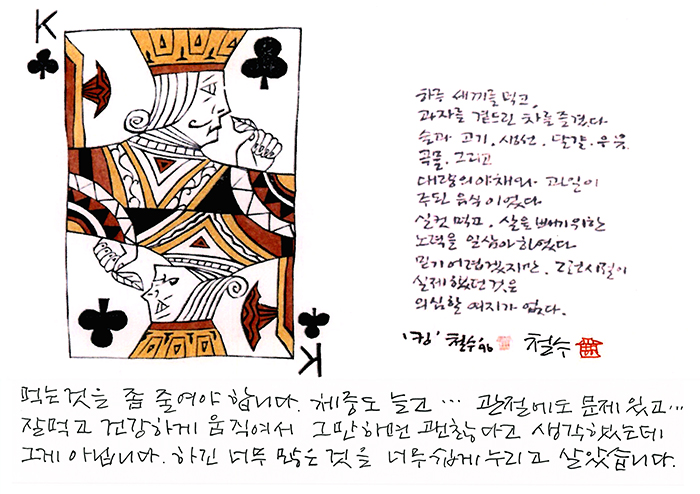 K
하루 세끼를 먹고,
과자를 곁드린 차를 즐겼다
술과 고기, 생선, 달걀, 우유,
곡물, 그리고
대량의 야채와 과일이
주된 음식이었다
실컷 먹고, 살을 빼기 위한
노력을 일삼아 하였다
믿기 어렵겠지만, 그런 시절이
실제했던 것은
의심할 여지가 없다.
'킹' 철수96 철수
K
먹는것을 좀 줄여야 합니다. 체중도 늘고… 관절에도 문제 있고…
잘먹고 건강하게 움직여서 그만하면 괜찮다고 생각했는데
그게 아닙니다. 하긴 너무 많은 것을 너무 쉽게 누리고 살았습니다.